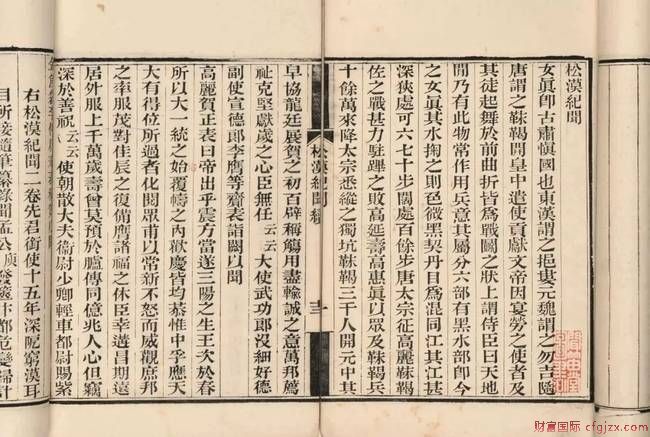 松漠紀聞
女眞卽古肅愼國也東漢謂之挹婁元魏謂之勿吉隋
唐謂之靺鞨開皇中遣使貢獻文帝因宴勞之使者及
其徒起舞於前曲折皆爲戰鬭之狀上謂侍臣曰天地
閒乃有此物常作用兵意其屬分六部有黑水部卽今
之女眞其水掬之則色微黑契丹目爲混同江其江甚
深狹處可六七十步闊處百餘步唐太宗征高麗靺鞨
佐之戰甚力駐蹕之敗高延壽高惠眞以眾及靺鞨兵
十餘萬來降太宗悉縱之獨坑靺鞨三千人開元中其
松漠紀聞
阜協龍廷展賀之初百辟稱觴用盡輸誠之意萬邦薦
祉克堅獻歲之心臣無任云云大使武功郎沒細好德
副使宣德郎李膺等齎表詣闕以聞
高麗賀正表曰帝出乎震方當遂三陽之生王次於春
所以大一統之始覆幬之內歡慶皆均恭惟中孚應天
大有得位所過者化閱眾甫以常新不怒而威觀庶邦
之率服茂對佳辰之復備膺諸福之休臣幸遘昌期遠
居外服上千萬歲壽曾莫預於臚傳同億兆人心但竊
深於善祝云云使朝散大夫衞尉少卿輕車都尉賜紫
右松漠紀聞二卷先君銜使十五年深阸窮漠耳
目所接隨筆纂錄聞孟公庾發篋汴都危變歸計
财富国际 cfgjzx.com